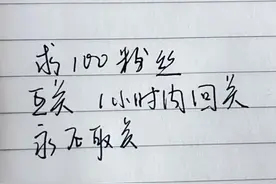 求100粉丝
互关 1小时内回关
永不取关